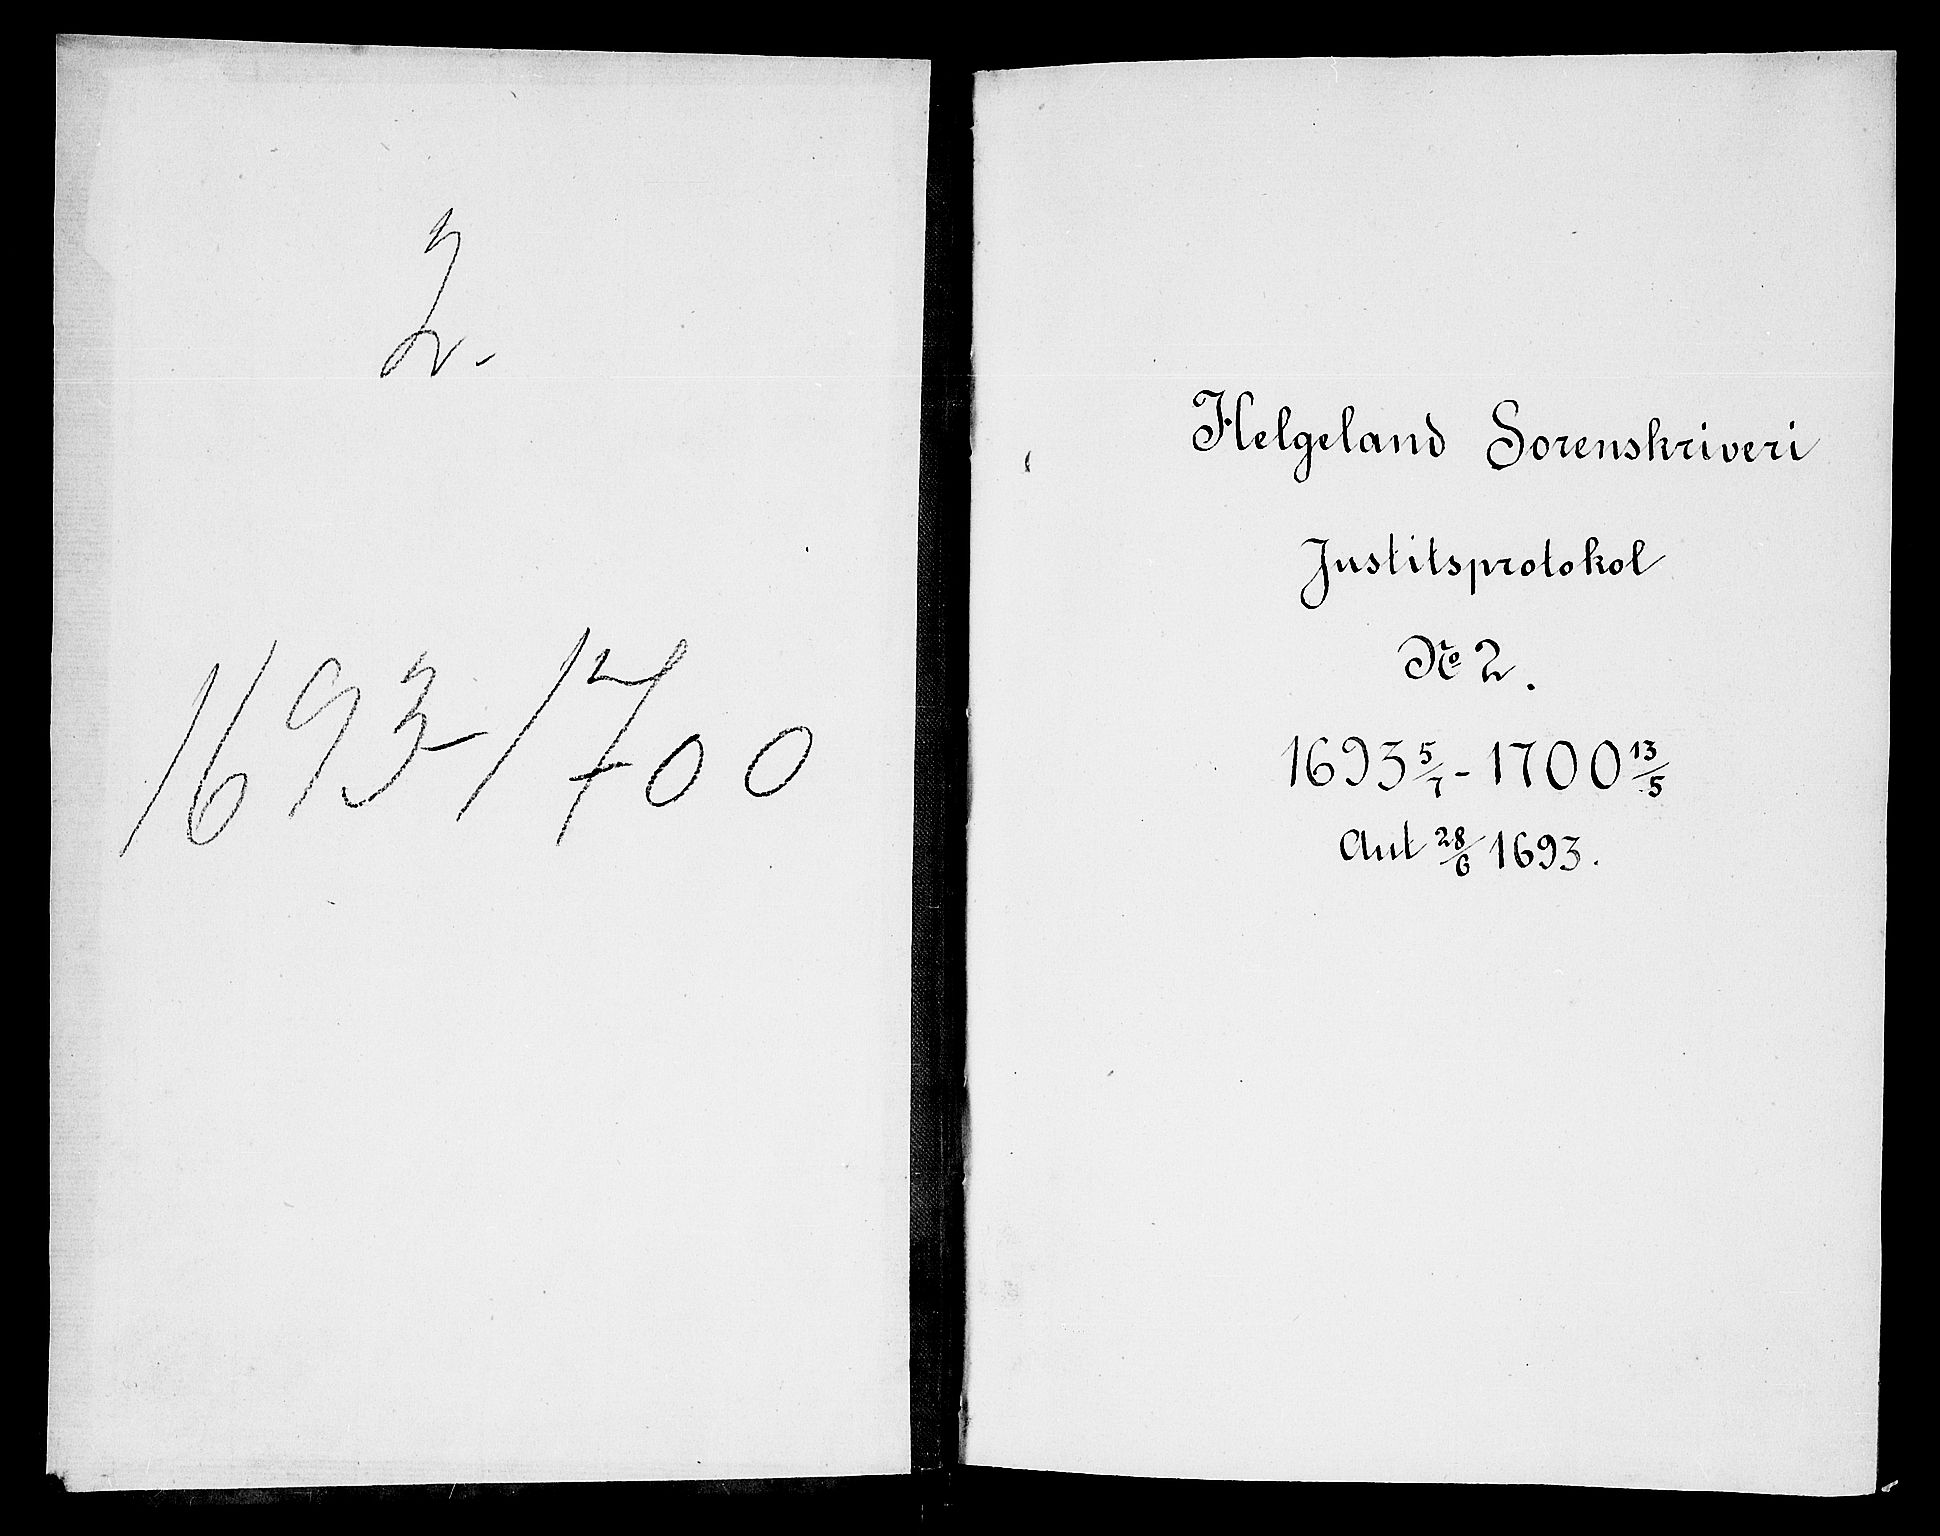 2.
1693-1700
Helgeland Sorenskriveri
Justitsprotokol
No 2.
1693 5/7 - 1700 13/5
Aut 28/6 1693.